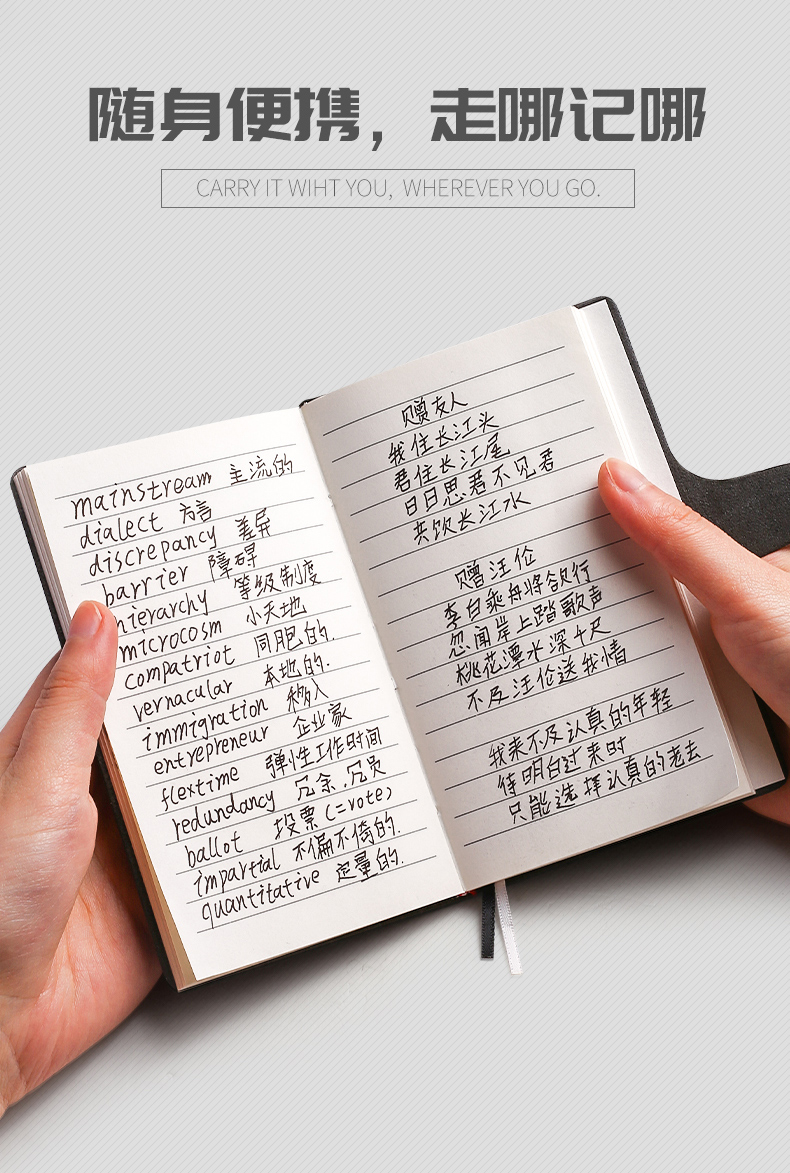 随身便携，走哪记哪
CARRY IT WIHT YOU, WHEREVER YOU GO.
mainstream 主流的
dialect 方言
discrepancy 差异
barrier 障碍
hierarchy 等级制度
microcosm 小天地
compatriot 同胞的.
vernacular 本地的.
immigration 移入
entrepreneur 企业家
flextime 弹性工作时间
redundancy 冗余.冗员
ballot 投票(=vote)
impartial 不偏不倚的.
quantitative 定量的.
赠友人
我住长江头
君住长江尾
日日思君不见君
共饮长江水
赠汪伦
李白乘舟将欲行
忽闻岸上踏歌声
桃花潭水深千尺
不及汪伦送我情
我来不及认真的年轻
待明白过来时
只能选择认真的老去